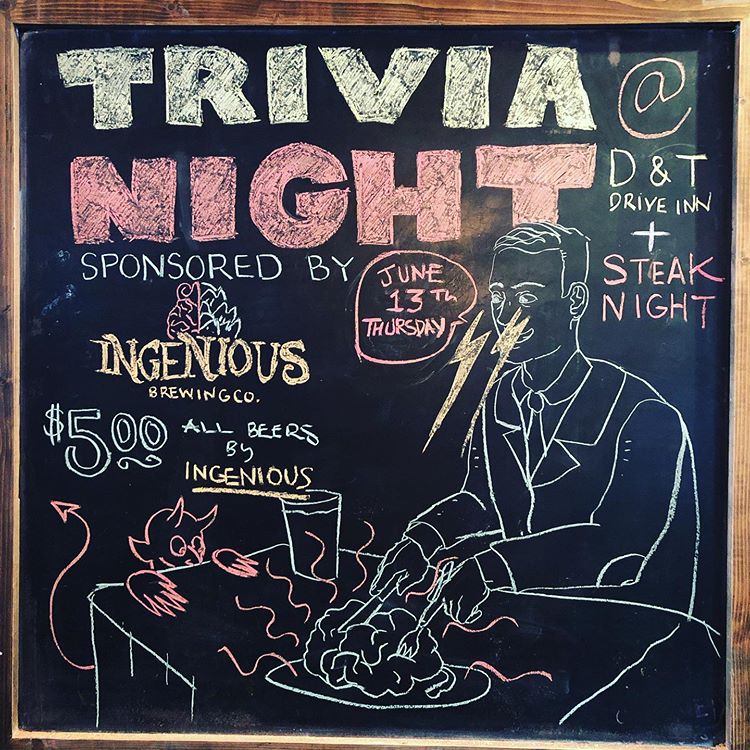 TRIVIA @
NIGHT
D & T
DRIVE INN
+
STEAK
NIGHT
SPONSORED BY
INGENIOUS
BREWING CO.
JUNE
13TH
THURSDAY
$5.00 ALL BEERS
BY
INGENIOUS